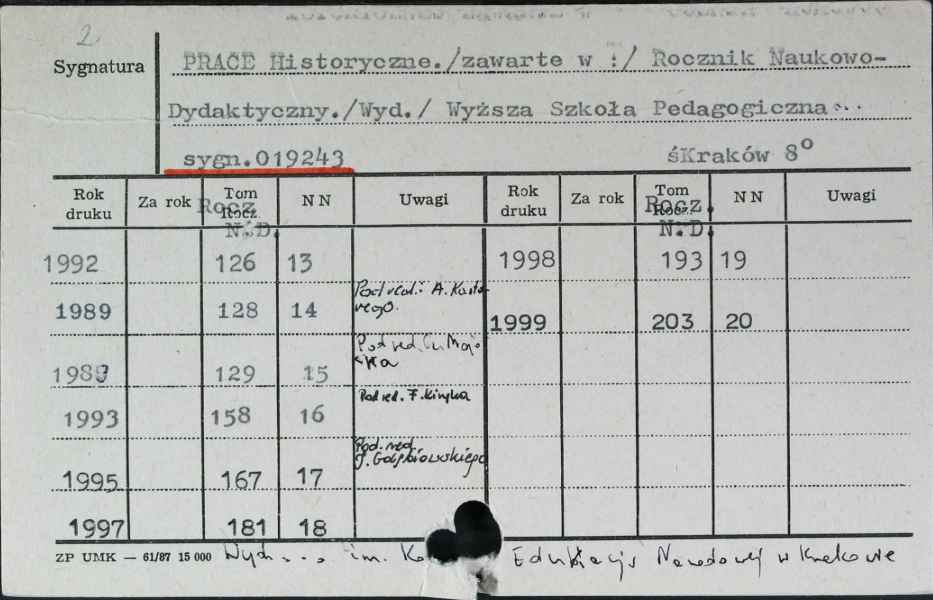 2
Sygnatura
PRACE Historyczne./zawarte w :/ Rocznik Naukowo-
Dydaktyczny./Wyd./ Wyższa Szkoła Pedagogiczna...
sygn.019243 śKraków 8°
Rok druku Za rok Tom Rocz. NN Uwagi Rok druku Za rok Tom Rocz. NN Uwagi
Rocz. N.D. Rocz. N.D.
1992 126 13 1998 193 19
1989 128 14 Pod red.: A. Kasto-
rego. 1999 203 20
1989 129 15 Pod red. Cz. Maj-
ka
1993 158 16 Pod red. F. Kiryka
1995 167 17 Pod. red.
J. Gołębiowskiego
1997 181 18
ZP UMK — 61/87 15 000 Wyd. ... im. Ko Edukacji Narodowej w Krakowie